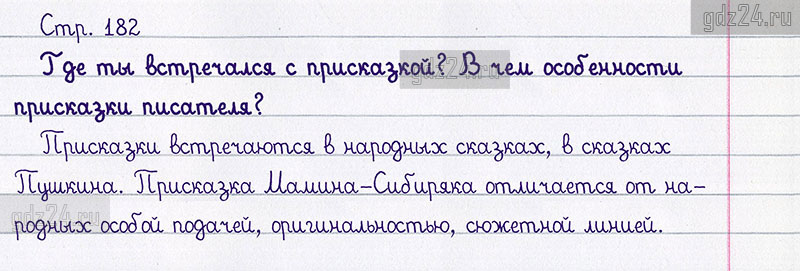 gdz24.ru
Стр. 182
Где ты встречался с присказкой? В чем особенности
gdz24.ru
присказки писателя?
Присказки встречаются в народных сказках, в сказках
Пушкина. Присказка Мамина-Сибиряка отличается от на-
gdz24.ru
родных особой подачей, оригинальностью, сюжетной линией.